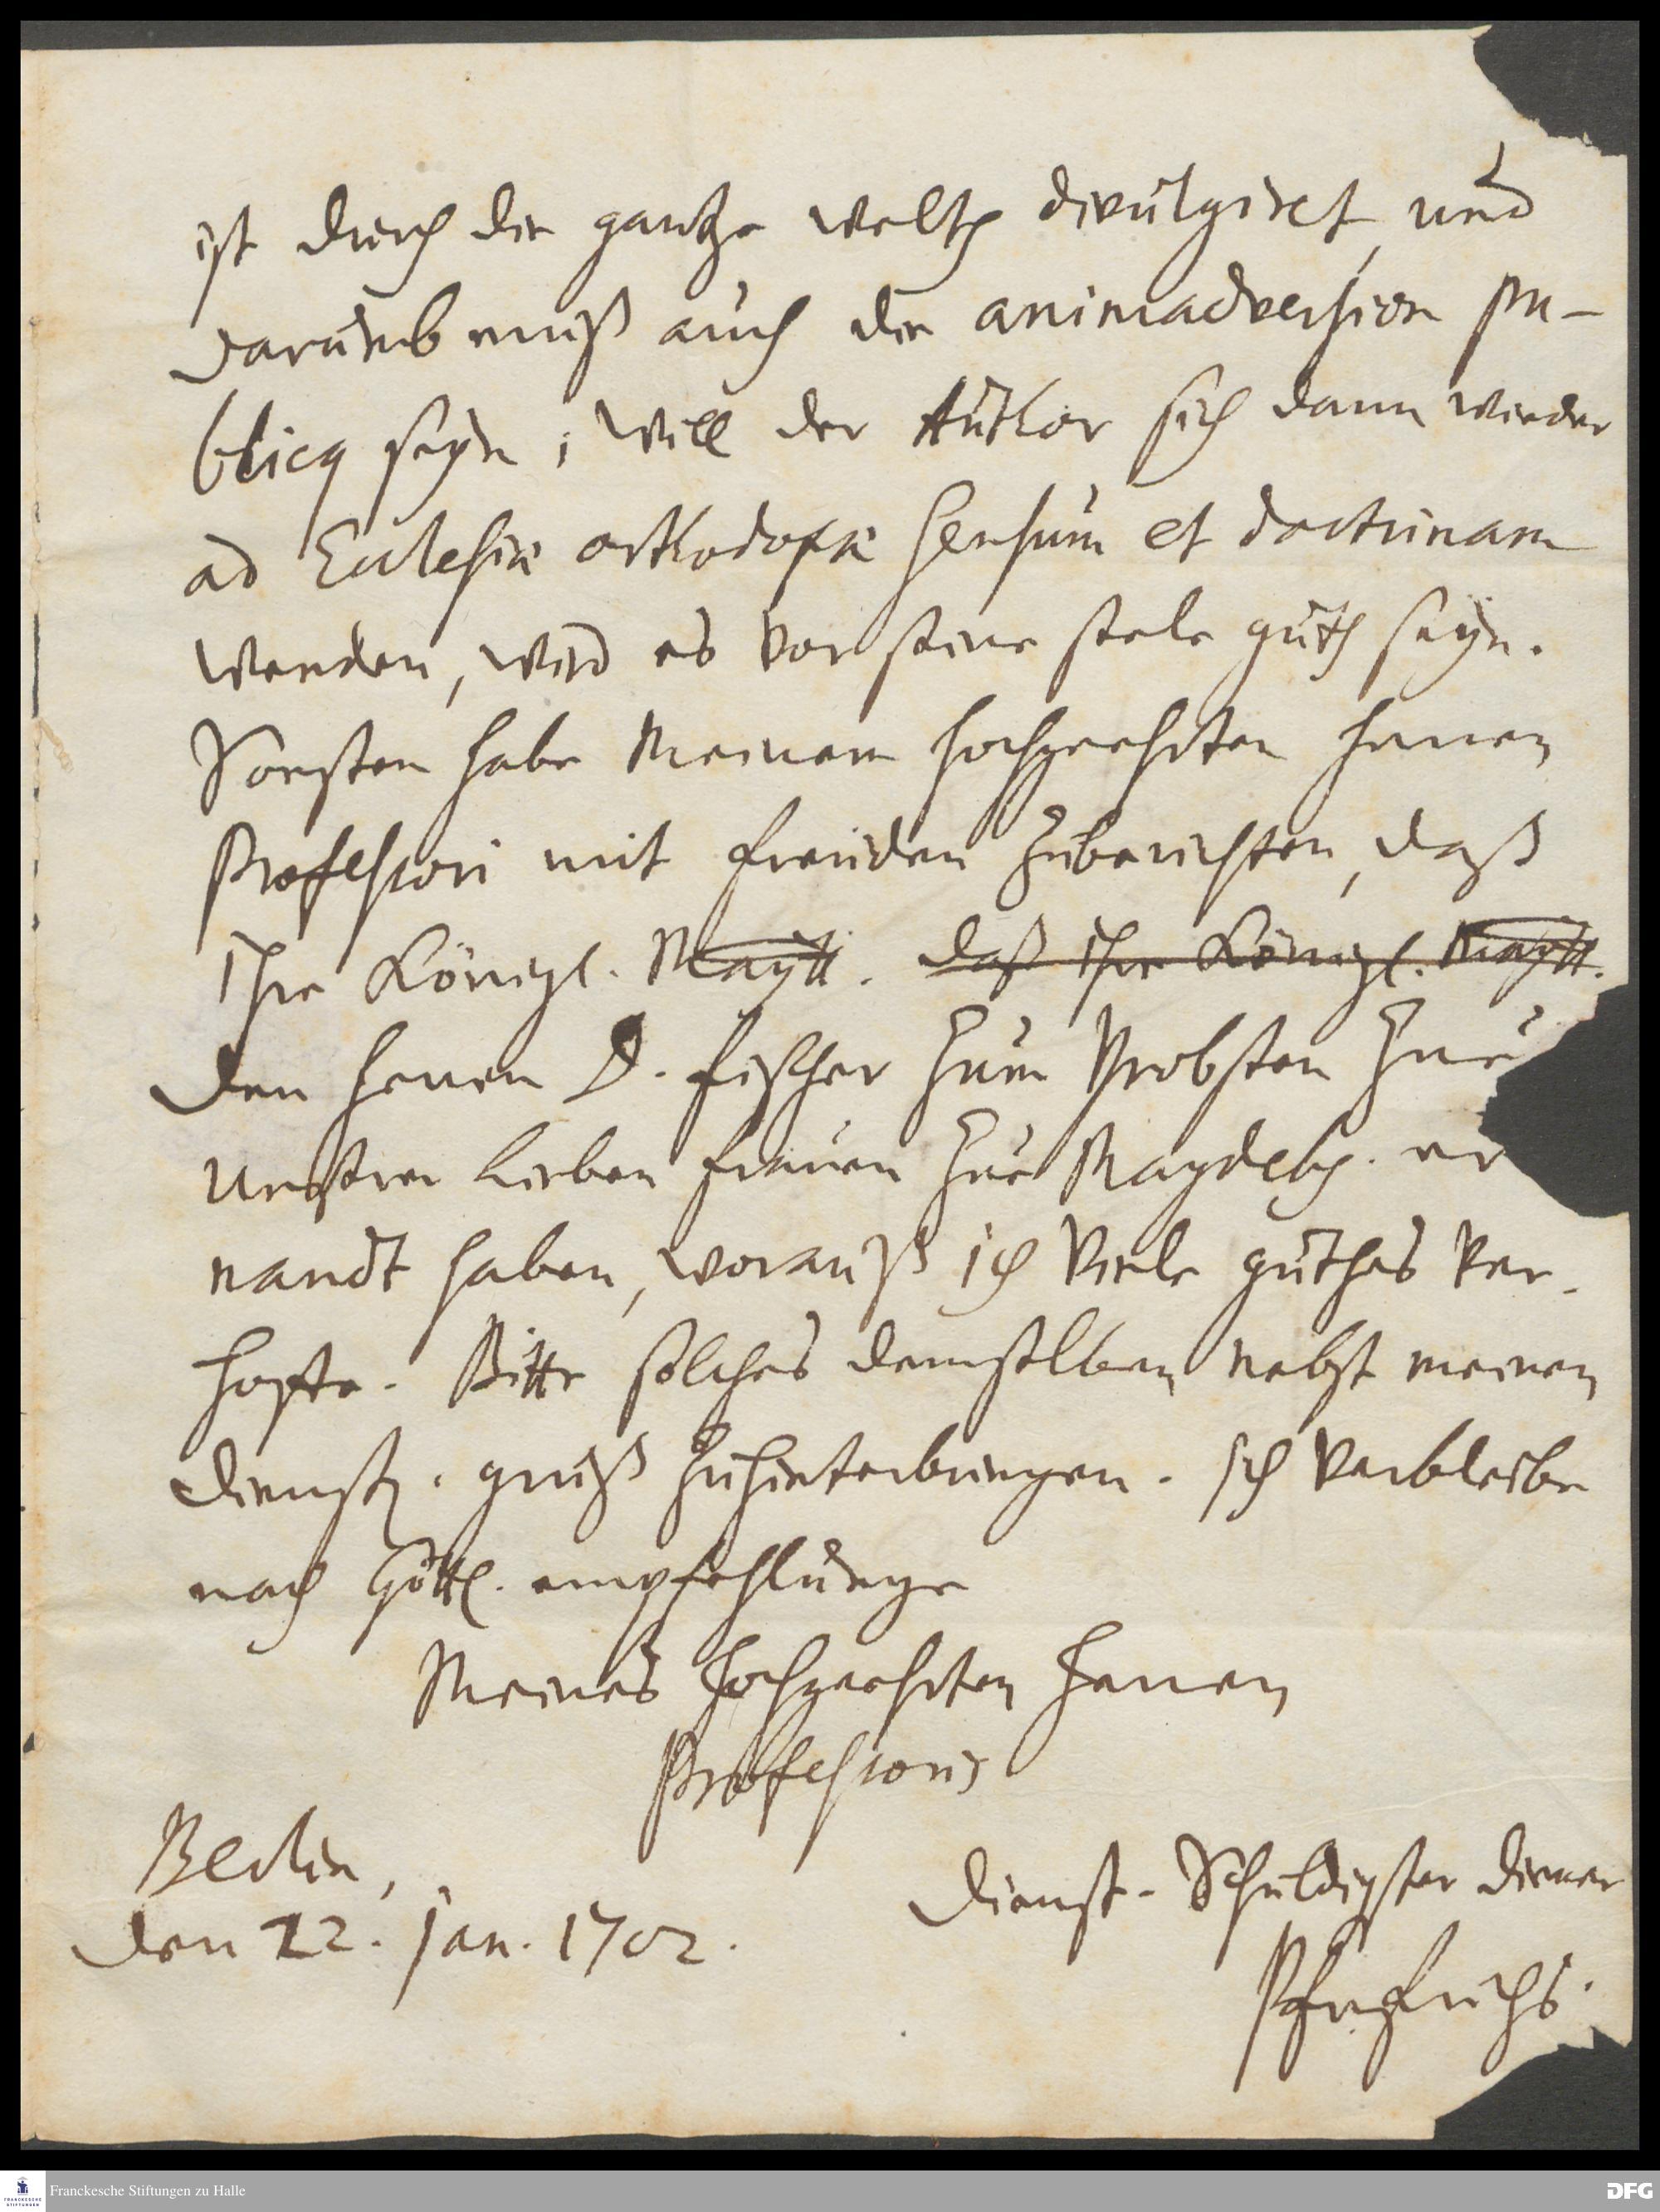 ist durch die gantze welth divulgiret, und
darumb muß auch die animadversion pu-
blicq seyn; will der Author sich dann wieder
ad Ecclesiæ orthodoxæ sensum et doctrinam
wenden, wird es vor seine seele guth seyn.
Sonsten habe Meinem hochgeehrten herren
Professori mit freuden zuberichten, daß
Ihre Königl. Maytt. daß Ihre Königl. Maytt.
den herren D. Fischer zum Probsten zur
Unser lieben frauen zur Magdeb. er
nandt haben, worauß ich viele guthes ver-
hoffe. Bitte solches demselben nebst meinen
dienstl. gruß zuhinterbringen. Ich verbleibe
nach Göttl. empfehlunge
Meines hochgeehrten herren
Professoris
Berlin,
den 22. Jan. 1702.
Dienst-Schuldigster diener
Fuchs.
Franckesche Stiftungen zu Halle
FRANCKESCHE STIFTUNGEN
DFG